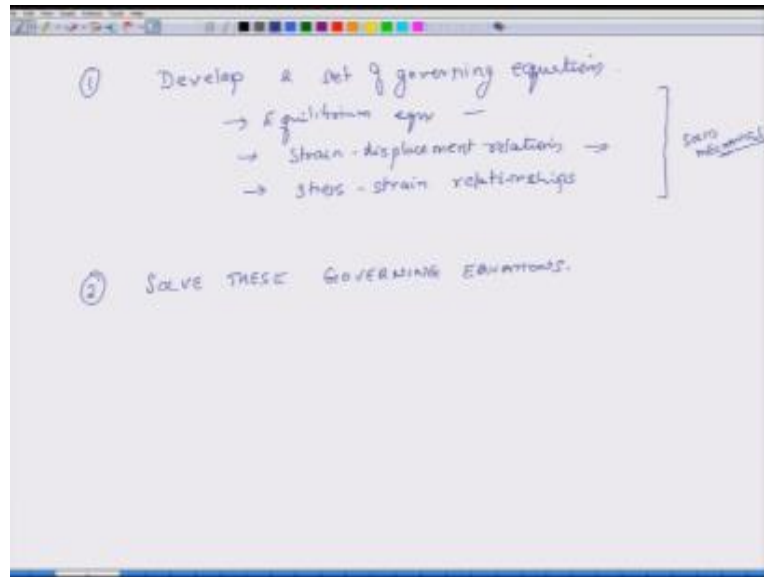 ① Develop a set of governing equations.
→ Equilibrium eqn —
→ Strain-displacement relations →
→ Stress-strain relationships
SOLID MECHANICS
② SOLVE THESE GOVERNING EQUATIONS.